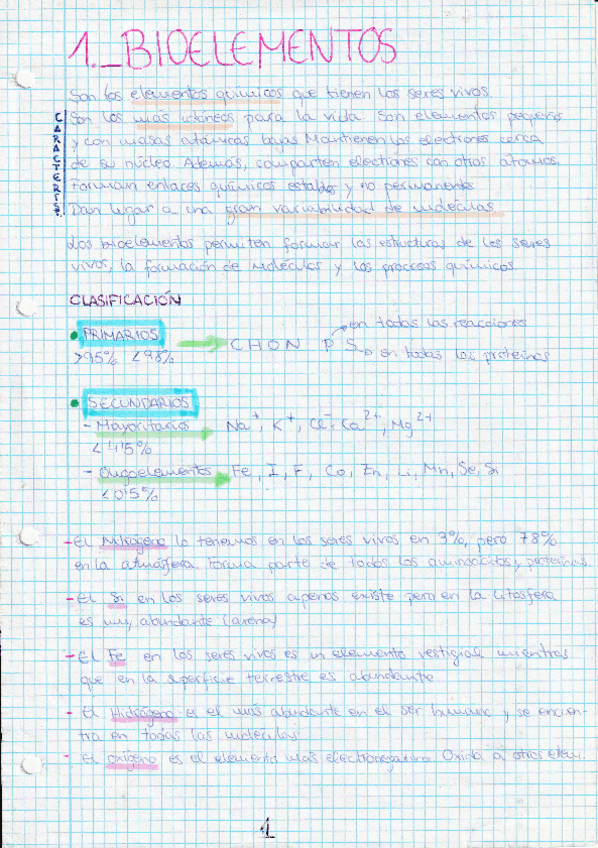 1._BIOELEMENTOS
Son los elementos químicos que tienen los seres vivos.
CARACTERÍST.
Son los más idóneos para la vida. Son elementos pequeños
y con masas atómicas bajas. Mantienen los electrones cerca
de su núcleo. Además, comparten electrones con otros átomos.
Forman enlaces químicos estables y no permanentes
Dan lugar a una gran variabilidad de moléculas
Los bioelementos permiten formar las estructuras de los seres
vivos, la formación de moléculas y los procesos químicos
CLASIFICACIÓN
• PRIMARIOS → CHON P S
>95% <98%
en todas las reacciones
en todas las proteínas
• SECUNDARIOS
- Mayoritarios → Na⁺, K⁺, Cl⁻, Ca²⁺, Mg²⁺
<4'5%
- Oligoelementos → Fe, I, F, Co, Zn, Li, Mn, Se, Si
<0'5%
- El Nitrógeno lo tenemos en los seres vivos en 3%, pero 78%
en la atmósfera. Forma parte de todos los aminoácidos y proteínas.
- El Si en los seres vivos apenas existe pero en la litosfera
es muy abundante (arena)
- El Fe en los seres vivos es un elemento vestigial mientras
que en la superficie terrestre es abundante
- El Hidrógeno es el más abundante en el ser humano y se encuen-
tra en todas las moléculas
- El oxígeno es el elemento más electronegativo. Oxida a otros elem.
1